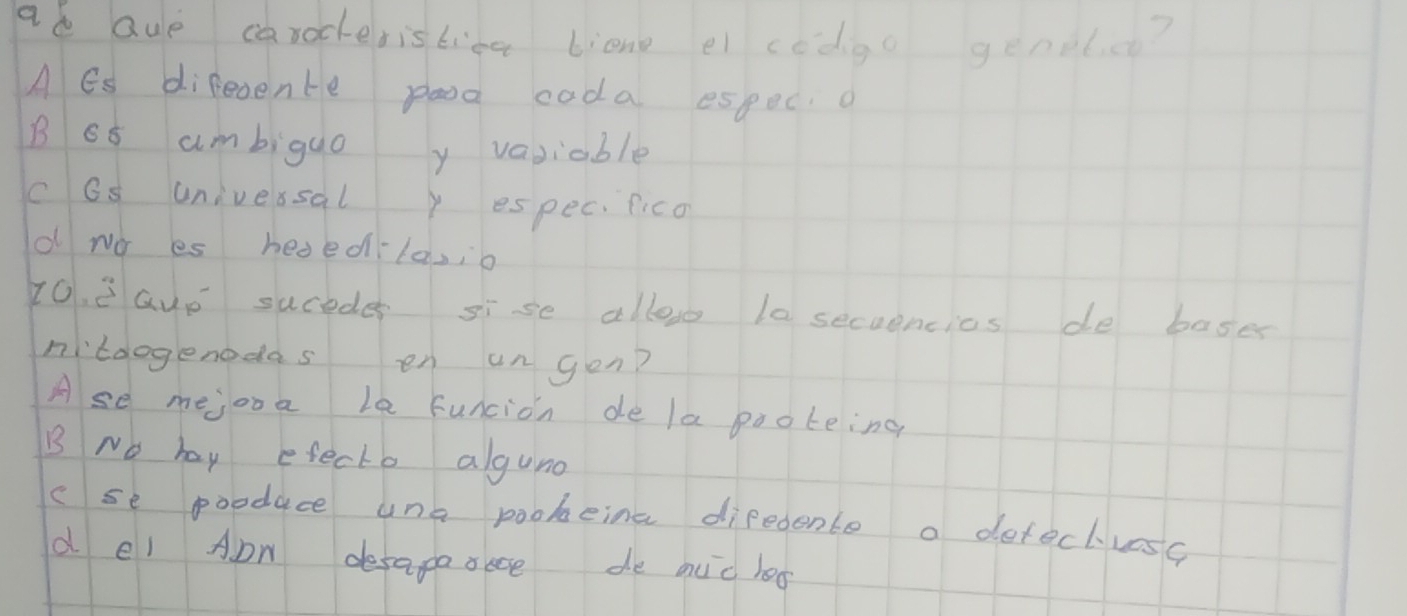 9 ¿ Qué caracteristica tiene el código genetico?
A Es diferente para cada especie
B es ambiguo y variable
C Es universal y especifico
d No es hereditario
10. ¿ Qué sucedes si se altera la secuencias de bases
nitrogenadas en un gen?
A se mejora la función de la proteina
B No hay efecto alguno
c se produce una proteina diferente o defectuosa
d el ADN desaparece de nucleo